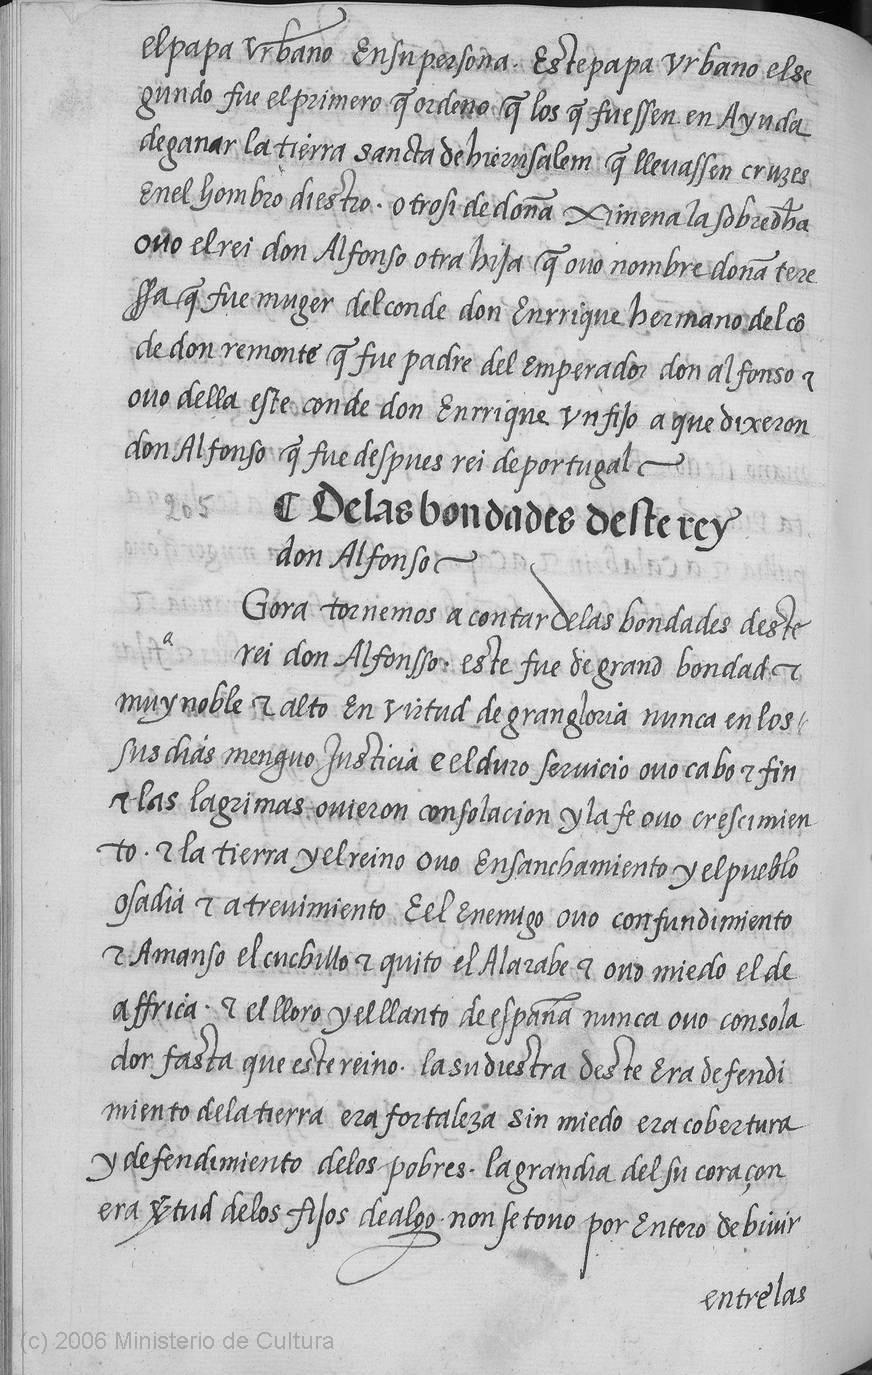 el papa Vrbano En su persona. Este papa Vrbano el se
gundo fue el primero q̃ ordeno q̃ los q̃ fuessen en Ayuda
de ganar la tierra sancta de hierusalem q̃ lleuassen cruzes
En el hombro diestro. otrosi de doña Ximena la sobred̃ha
ouo el rei don Alfonso otra hija q̃ ouo nombre doña tere
ssa q̃ fue muger del conde don Enrrique hermano del cõ
de don remonte q̃ fue padre del Emperador don alfonso ⁊
ouo della este conde don Enrrique Vn fijo a que dixeron
don Alfonso q̃ fue despues rei de portugal
205
¶ Delas bondades deste rey
don Alfonso
a
Gora tornemos a contar delas bondades deste
rei don Alfonsso. este fue de grand bondad ⁊
muy noble ⁊ alto En Virtud de gran gloria nunca en los
sus dias menguo Justicia e el duro seruicio ouo cabo ⁊ fin
⁊ las lagrimas ouieron consolacion y la fe ouo crescimien
to. ⁊ la tierra y el reino ouo Ensanchamiento y el pueblo
osadia ⁊ atreuimiento E el Enemigo ouo confundimiento
⁊ Amanso el cuchillo ⁊ quito el Alarabe ⁊ ouo miedo el de
affrica. ⁊ el lloro y el llanto de españa nunca ouo consola
dor fasta que este reino. la su diestra deste Era defendi
miento dela tierra era fortaleza sin miedo era cobertura
y defendimiento delos pobres. la grandia del su coraçon
era Ṽtud delos fijos dealgo. non se touo por Entero de biuir
entre las
(c) 2006 Ministerio de Cultura